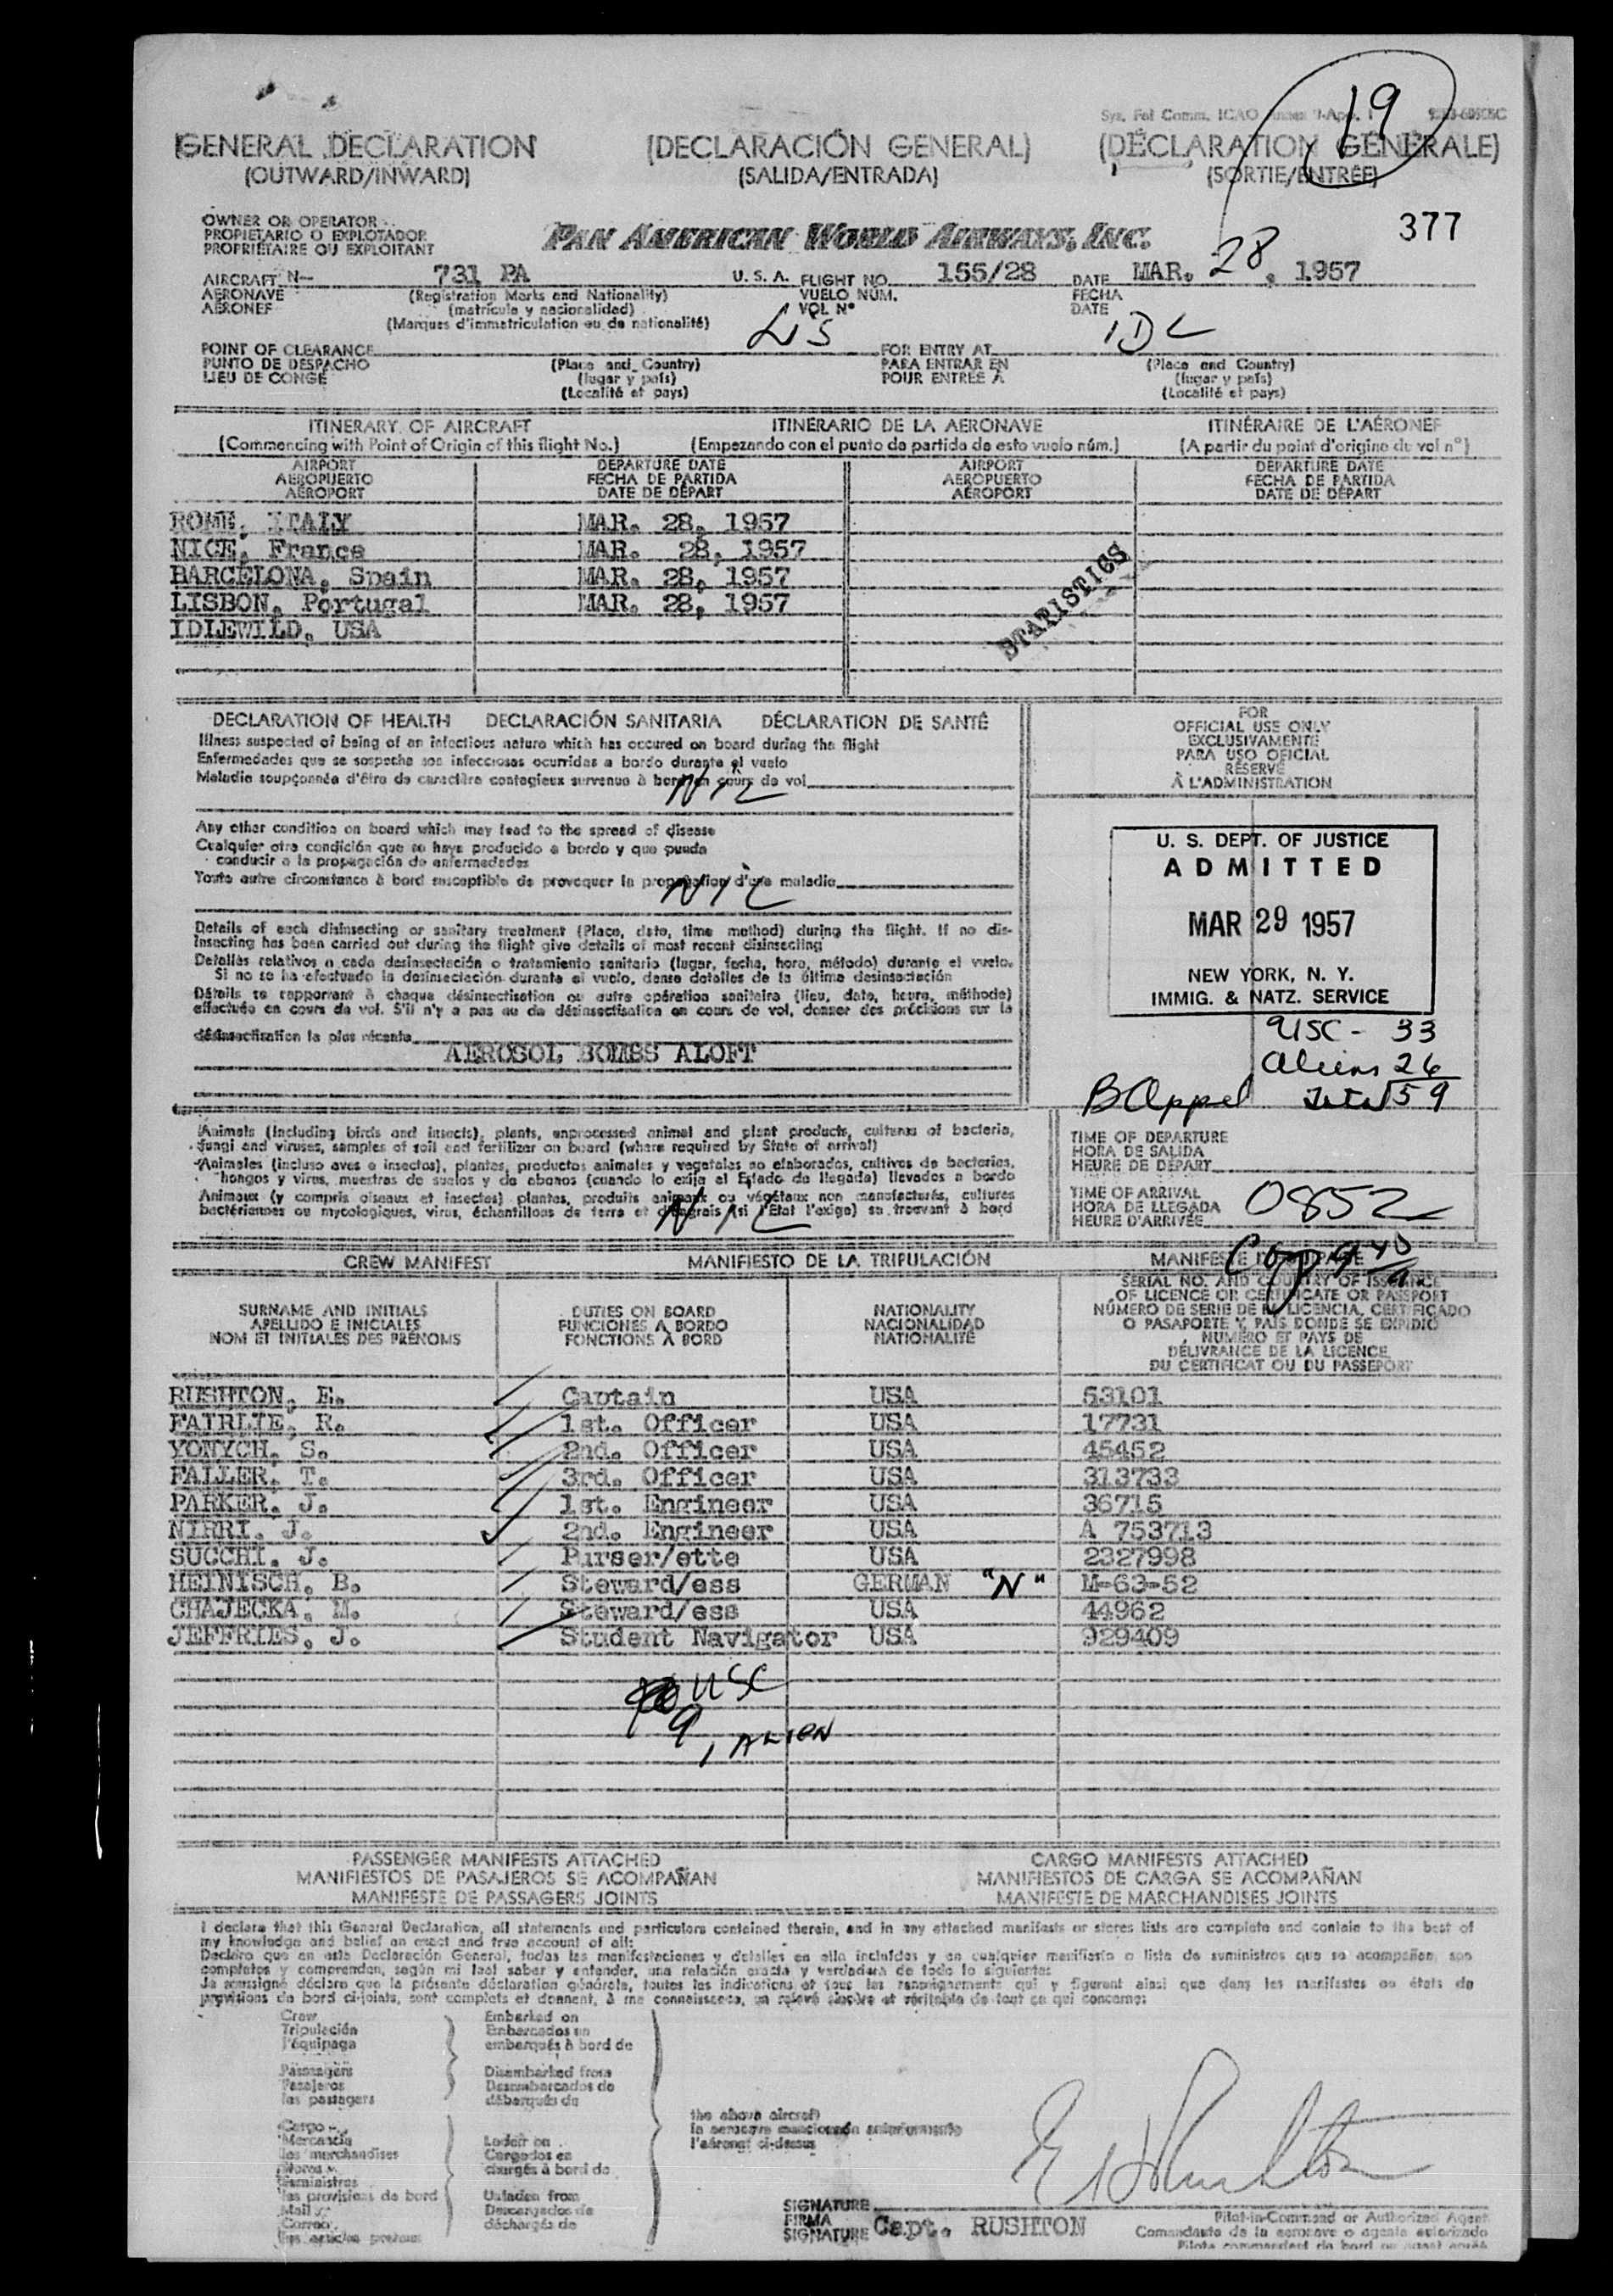 19
Sys. Fol Comm. ICAO Annex 9-App. 1
GENERAL DECLARATION (DECLARACIÓN GENERAL) (DÉCLARATION GÉNÉRALE)
(OUTWARD/INWARD) (SALIDA/ENTRADA) (SORTIE/ENTRÉE)
377
OWNER OR OPERATOR
PROPIETARIO O EXPLOTADOR
PROPRIÉTAIRE OU EXPLOITANT
PAN AMERICAN WORLD AIRWAYS, INC.
AIRCRAFT N- 731 PA U. S. A. FLIGHT NO. 155/28 DATE MAR. 28, 1957
AERONAVE (Registration Marks and Nationality) VUELO NÚM. FECHA
AÉRONEF (matrícula y nacionalidad) VOL N° DATE
(Marques d'immatriculation ou de nationalité)
POINT OF CLEARANCE LIS FOR ENTRY AT IDL
PUNTO DE DESPACHO (Place and Country) PARA ENTRAR EN (Place and Country)
LIEU DE CONGÉ (lugar y país) POUR ENTRÉE À (lugar y país)
(Localité et pays) (Localité et pays)
ITINERARY OF AIRCRAFT ITINERARIO DE LA AERONAVE ITINÉRAIRE DE L'AÉRONEF
(Commencing with Point of Origin of this flight No.) (Empezando con el punto de partida de esto vuelo núm.) (A partir du point d'origine du vol n°)
AIRPORT DEPARTURE DATE AIRPORT DEPARTURE DATE
AEROPUERTO FECHA DE PARTIDA AEROPUERTO FECHA DE PARTIDA
AÉROPORT DATE DE DÉPART AÉROPORT DATE DE DÉPART
ROME, ITALY MAR. 28, 1957
NICE, France MAR. 28, 1957
BARCELONA, Spain MAR. 28, 1957
LISBON, Portugal MAR. 28, 1957
IDLEWILD, USA
STATISTICS
DECLARATION OF HEALTH DECLARACIÓN SANITARIA DÉCLARATION DE SANTÉ
Illness suspected of being of an infectious nature which has occured on board during the flight
Enfermedades que se sospecha son infecciosas ocurridas a bordo durante el vuelo
Maladie soupçonnée d'être de caractère contagieux survenue à bord en cours de vol
NIL
Any other condition on board which may lead to the spread of disease
Cualquier otra condición que se haya producido a bordo y que pueda
conducir a la propagación de enfermedades
Toute autre circonstance à bord susceptible de provoquer la propagation d'une maladie
NIL
Details of each disinsecting or sanitary treatment (Place, date, time method) during the flight. If no dis-
insecting has been carried out during the flight give details of most recent disinsecting
Detalles relativos a cada desinsectación o tratamiento sanitario (lugar, fecha, hora, método) durante el vuelo.
Si no se ha efectuado la desinsectación durante el vuelo, dense detalles de la última desinsectación
Détails se rapportant à chaque désinsectisation ou autre opération sanitaire (lieu, date, heure, méthode)
effectuée en cours de vol. S'il n'y a pas eu de désinsectisation en cours de vol, donner des précisions sur la
désinsectisation la plus récente
AEROSOL BOMBS ALOFT
FOR
OFFICIAL USE ONLY
EXCLUSIVAMENTE
PARA USO OFICIAL
RÉSERVÉ
À L'ADMINISTRATION
U. S. DEPT. OF JUSTICE
ADMITTED
MAR 29 1957
NEW YORK, N. Y.
IMMIG. & NATZ. SERVICE
USC - 33
Aliens 26
B Appel Total 59
Animals (including birds and insects), plants, unprocessed animal and plant products, cultures of bacteria,
fungi and viruses, samples of soil and fertilizer on board (where required by State of arrival)
Animales (incluso aves e insectos), plantas, productos animales y vegetales no elaborados, cultivos de bacterias,
hongos y virus, muestras de suelos y de abonos (cuando lo exija el Estado de llegada) llevados a bordo
Animaux (y compris oiseaux et insectes) plantes, produits animaux ou végétaux non manufacturés, cultures
bactériennes ou mycologiques, virus, échantillons de terre et d'engrais (si l'Etat l'exige) se trouvant à bord
NIL
TIME OF DEPARTURE
HORA DE SALIDA
HEURE DE DÉPART
TIME OF ARRIVAL
HORA DE LLEGADA
HEURE D'ARRIVÉE
0852
CREW MANIFEST MANIFIESTO DE LA TRIPULACIÓN MANIFESTE D'ÉQUIPAGE
SURNAME AND INITIALS DUTIES ON BOARD NATIONALITY SERIAL NO. AND COUNTRY OF ISSUANCE
APELLIDO E INICIALES FUNCIONES A BORDO NACIONALIDAD OF LICENCE OR CERTIFICATE OR PASSPORT
NOM ET INITIALES DES PRÉNOMS FONCTIONS À BORD NATIONALITÉ NÚMERO DE SERIE DE LA LICENCIA, CERTIFICADO
O PASAPORTE Y PAÍS DONDE SE EXPIDIÓ
NUMÉRO ET PAYS DE
DÉLIVRANCE DE LA LICENCE
DU CERTIFICAT OU DU PASSEPORT
RUSHTON, E. Captain USA 53101
FAIRLIE, R. 1st. Officer USA 17731
YONYCH, S. 2nd. Officer USA 45452
FALLER, T. 3rd. Officer USA 313733
PARKER, J. 1st. Engineer USA 36715
NIRRI, J. 2nd. Engineer USA A 753713
SUCCHI, J. Purser/ette USA 2327998
HEINISCH, B. Steward/ess GERMAN "N" M-63-52
CHAJECKA, M. Steward/ess USA 44962
JEFFRIES, J. Student Navigator USA 929409
USC
9
1 ALIEN
PASSENGER MANIFESTS ATTACHED CARGO MANIFESTS ATTACHED
MANIFIESTOS DE PASAJEROS SE ACOMPAÑAN MANIFIESTOS DE CARGA SE ACOMPAÑAN
MANIFESTE DE PASSAGERS JOINTS MANIFESTE DE MARCHANDISES JOINTS
I declare that this General Declaration, all statements and particulars contained therein, and in any attached manifests or stores lists are complete and contain to the best of
my knowledge and belief an exact and true account of all:
Declaro que en esta Declaración General, todas las manifestaciones y detalles en ella incluídos y en cualquier manifiesto o lista de suministros que se acompañen, son
completos y comprenden, según mi leal saber y entender, una relación exacta y verdadera de todo lo siguiente:
Je soussigné déclare que la présente déclaration générale, toutes les indications et tous les renseignements qui y figurent ainsi que dans les manifestes ou états de
provisions de bord ci-joints, sont complets et donnent, à ma connaissance, un relevé sincère et véritable de tout ce qui concerne:
Crew Embarked on
Tripulación Embarcados en
l'équipage embarqués à bord de
Passengers Disembarked from
Pasajeros Desembarcados de
les passagers débarqués de
Cargo
Mercancía Laden on
les marchandises Cargados en
Stores chargés à bord de
Suministros
les provisions de bord Unladen from
Mail Descargados de
Correo déchargés de
les articles postaux
the above aircraft
la aeronave mencionada anteriormente
l'aéronef ci-dessus
E Rushton
SIGNATURE
FIRMA
SIGNATURE Capt. RUSHTON
Pilot-in-Command or Authorized Agent
Comandante de la aeronave o agente autorizado
Pilote commandant de bord ou agent agréé